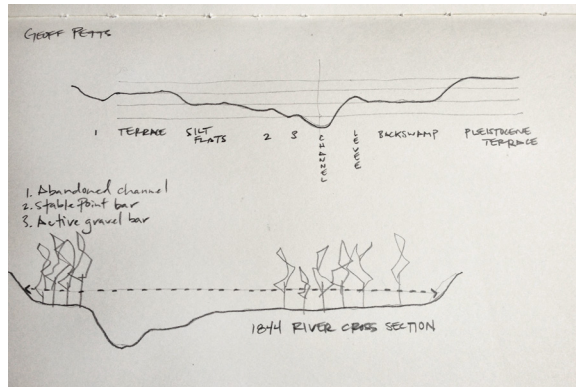 GEOFF PETTS
1 TERRACE SILT FLATS 2 3 CHANNEL LEVEE BACKSWAMP PLEISTOCENE TERRACE
1. Abandoned channel
2. Stable Point bar
3. Active gravel bar
1844 RIVER CROSS SECTION